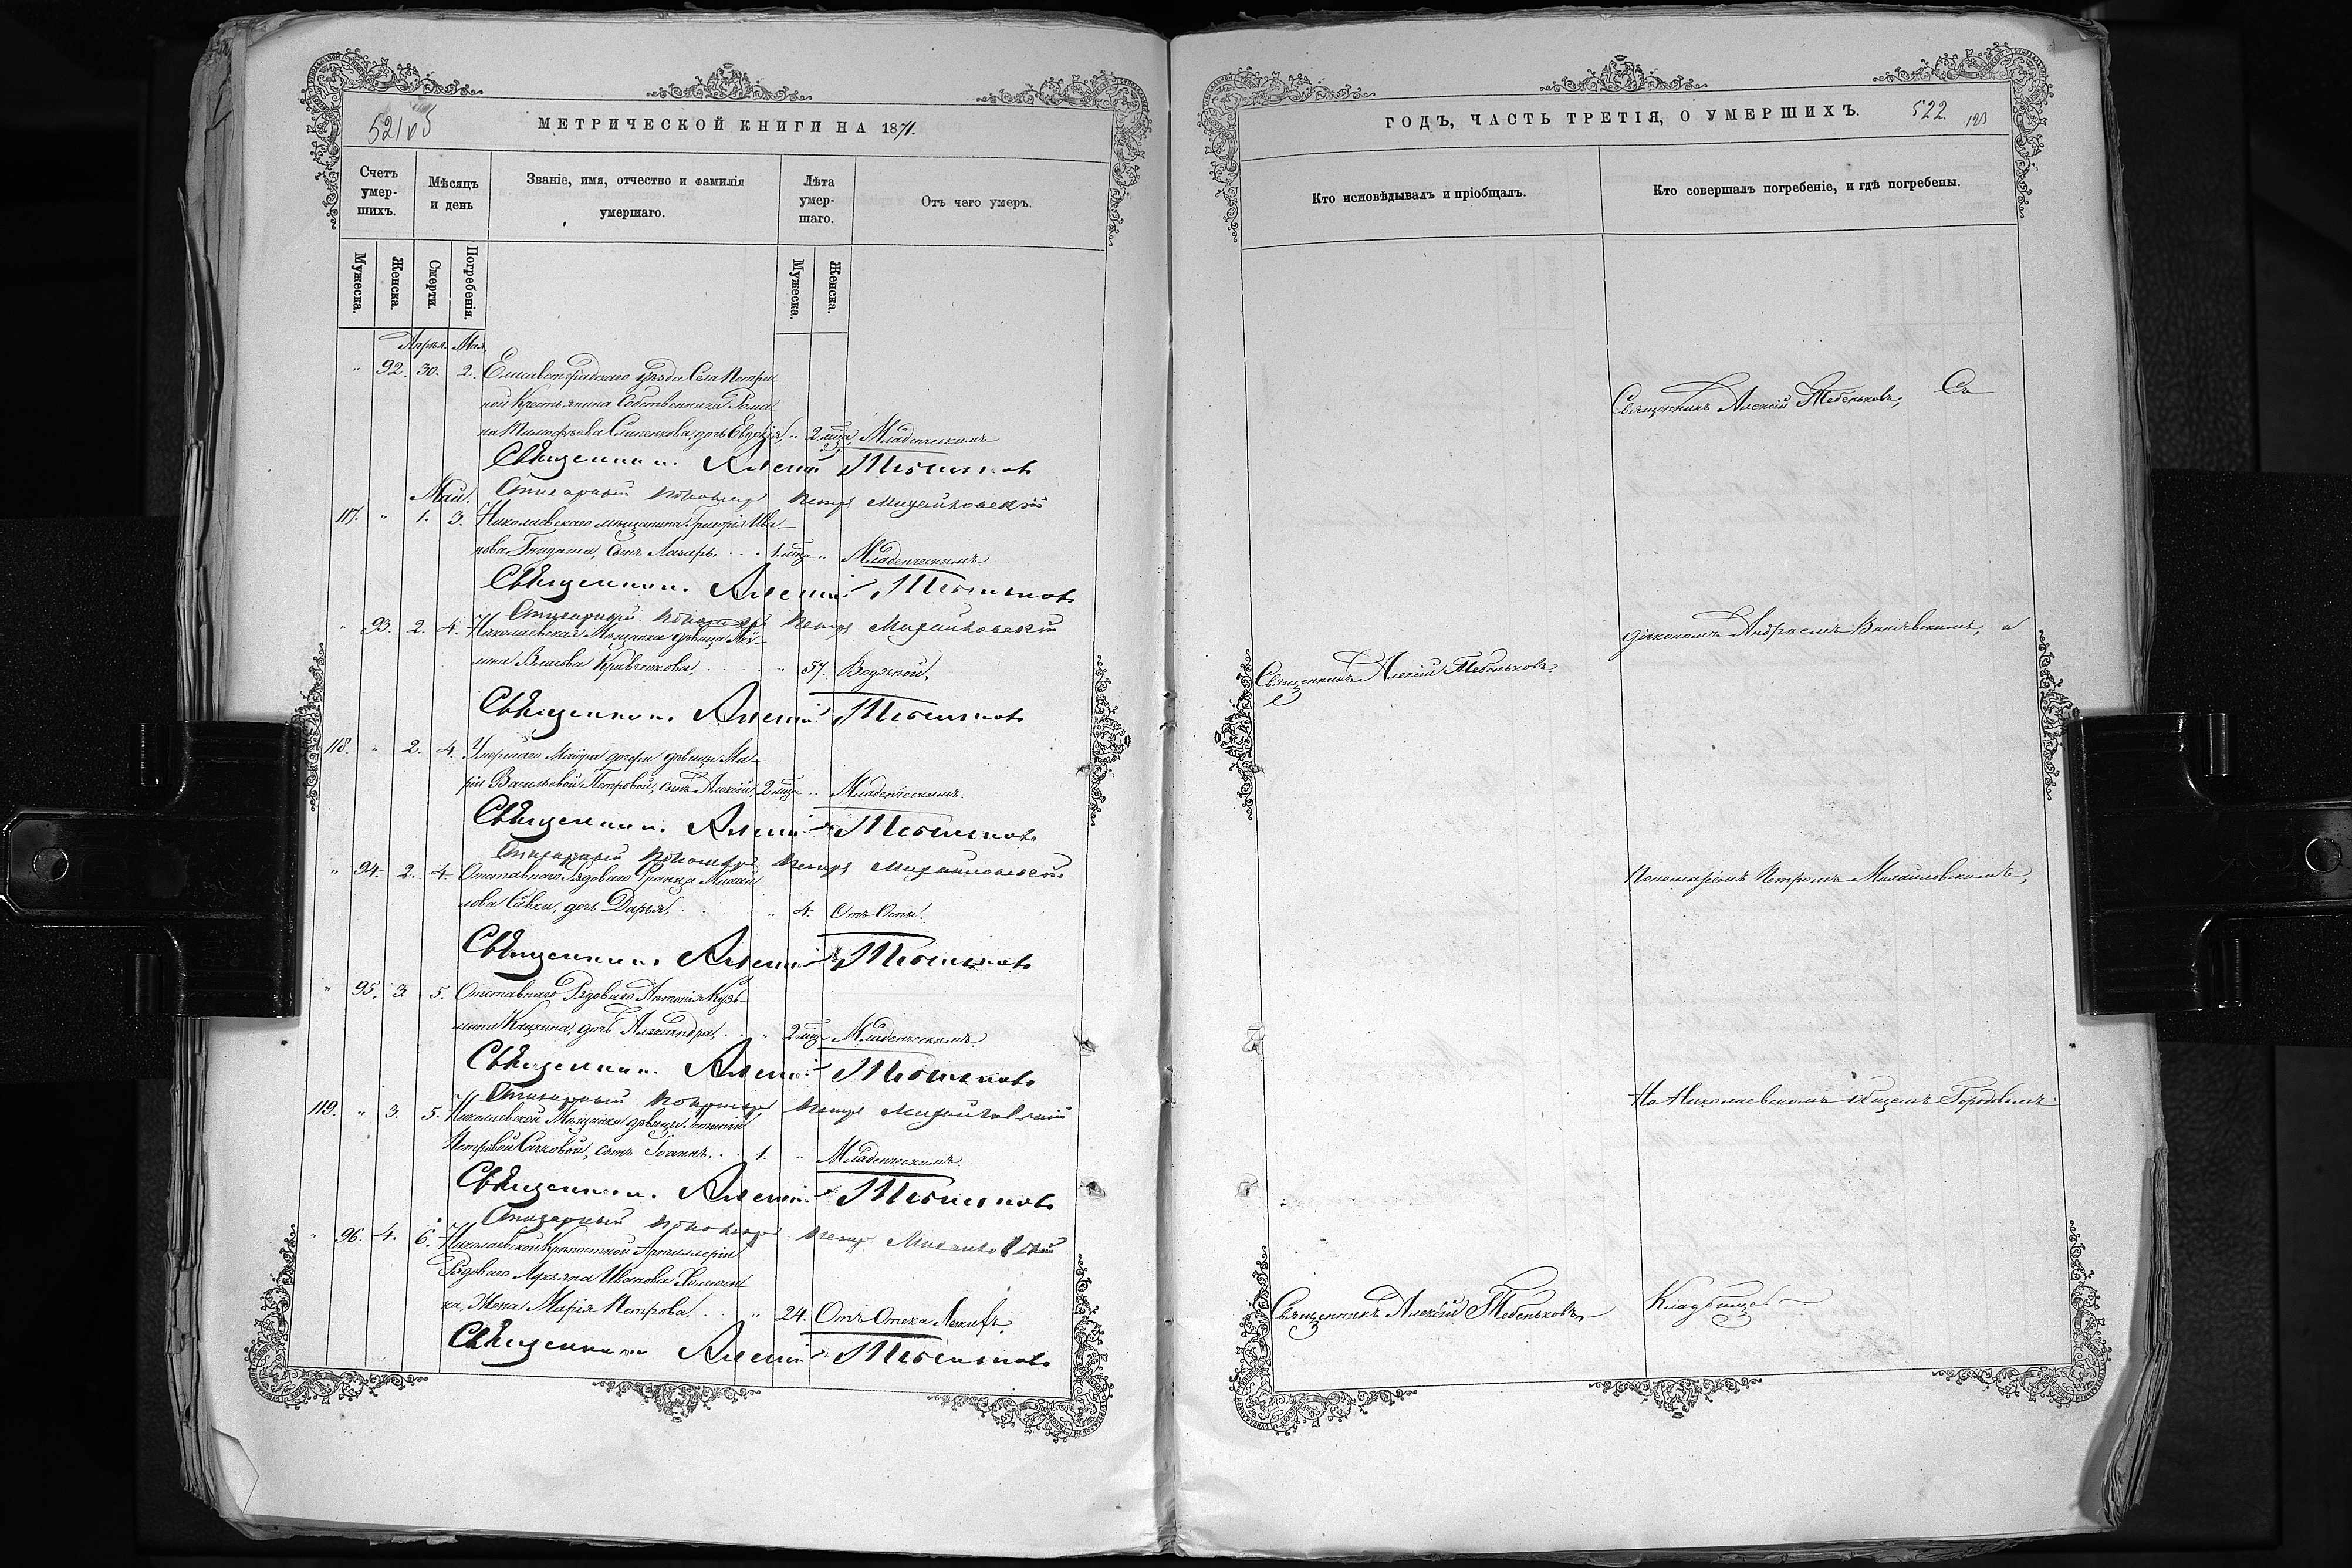 МЕТРИЧЕСКОЙ КНИГИ НА 1871.
Счетъ умер-шихъ.
Мѣсяцъ и день
Званіе, имя, отчество и фамилія умершаго.
Лѣта умер-шаго.
Отъ чего умеръ.
Мужеска. Женска. Смерти. Погребенія. Мужеска. Женска.
Апрѣл. Мая.
" 92. 30. 2. Елисаветградскаго уѣзда Села Петри
ной Крестьянина Собственника Рома
на Тимофѣева дочь Евдокія, " 2 мца, Младенческимъ
Священникъ Алексій Тебеньковъ
Май. Пономарь Петръ Михайловскій
117. " 1. 3. Николаевскаго мѣщанина Григорія Ива-
нова сынъ Лазарь. 1 мца " Младенческимъ.
Священникъ Алексій Тебеньковъ
Пономарь Петръ Михайловскій
" 93. 2. 4. Николаевская Мѣщанка дѣвица
Власова Кравченкова, " 57. Водяной.
Священникъ Алексій Тебеньковъ
118. " 2. 4. Умершаго Маіора дочери дѣвицы Ма-
ріи Васильевой Петровой, сынъ Алексій, 2 мца " Младенческимъ.
Священникъ Алексій Тебеньковъ
Пономарь Петръ Михайловскій
" 94. 2. 4. Отставнаго Рядоваго Франца Михаи
лова Савки, дочь Дарья, " 4. Отъ Оспы.
Священникъ Алексій Тебеньковъ
" 95. 3 5. Отставнаго Рядоваго Антонія Кузь-
мина дочь Александра, " 2 мца Младенческимъ.
Священникъ Алексій Тебеньковъ
Пономарь Петръ Михайловскій
119. " 3. 5. Николаевской Мѣщанки дѣвицы
Петровой сынъ Іоаннъ. 1. " Младенческимъ.
Священникъ Алексій Тебеньковъ
Пономарь Петръ Михайловскій
" 96. 4. 6. Николаевской Крѣпостной Артиллеріи
Рядоваго Лукьяна Иванова
ка, Жена Марія Петрова. " 24. Отъ Отека Легкихъ.
Священникъ Алексій Тебеньковъ
ГОДЪ, ЧАСТЬ ТРЕТІЯ, О УМЕРШИХЪ. 522. 123
Кто исповѣдывалъ и пріобщалъ.
Кто совершалъ погребеніе, и гдѣ погребены.
Священникъ Алексій Тебеньковъ, Съ
діакономъ Андреемъ и
Священникъ Алексій Тебеньковъ.
Пономаремъ Петромъ Михайловскимъ,
На Николаевскомъ общемъ Городскомъ
Священникъ Алексій Тебеньковъ,
Кладбищѣ